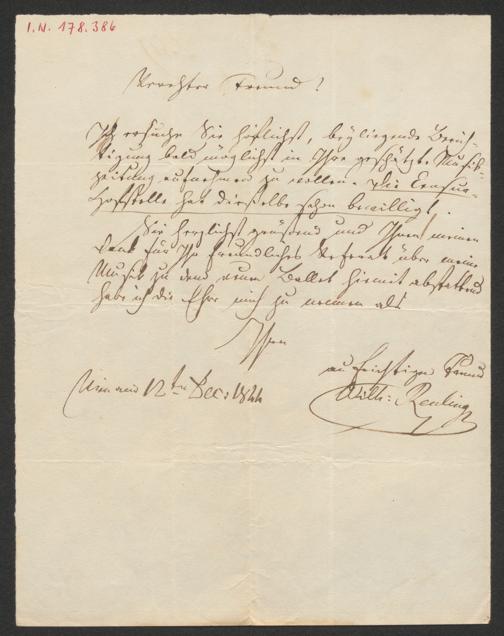 I.N. 178.386
Verehrter Freund!
Ich ersuche Sie höflichst, beyliegende Berich-
tigung bald möglichst in Ihre geschätzte Musik-
zeitung aufnehmen zu wollen. Die Censur-
Hofstelle hat dieselbe schon bewilligt.
Sie herzlichst grüßend und Ihnen meinen
Dank für Ihr freundliches Referat über meine
Musik zu dem neuen Ballet hiemit abstattend
habe ich die Ehre mich zu nennen als
Ihren
aufrichtigen Freund
Wien am 12ten Dec: 1844
Wilh: Reuling